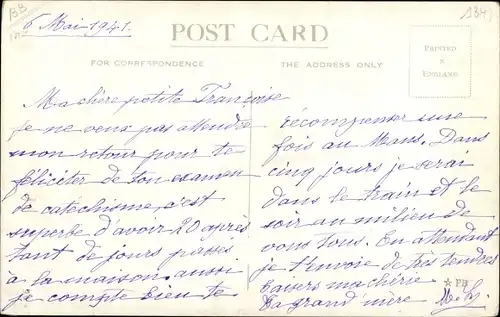 6 Mai 1941.
POST CARD
1941
FOR CORRESPONDENCE
THE ADDRESS ONLY
PRINTED
IN
ENGLAND
Ma chère petite Françoise
je ne veux pas attendre
mon retour pour te
féliciter de ton examen
de catechisme, c'est
superbe d'avoir 20 après
tant de jours passés
à la maison, aussi
je compte bien te
récompenser une
fois au Mans. Dans
cinq jours je serai
dans le train et le
soir au milieu de
vous tous. En attendant
je t'envoie de très tendres
baisers ma chérie
Ta grand'mère
PB